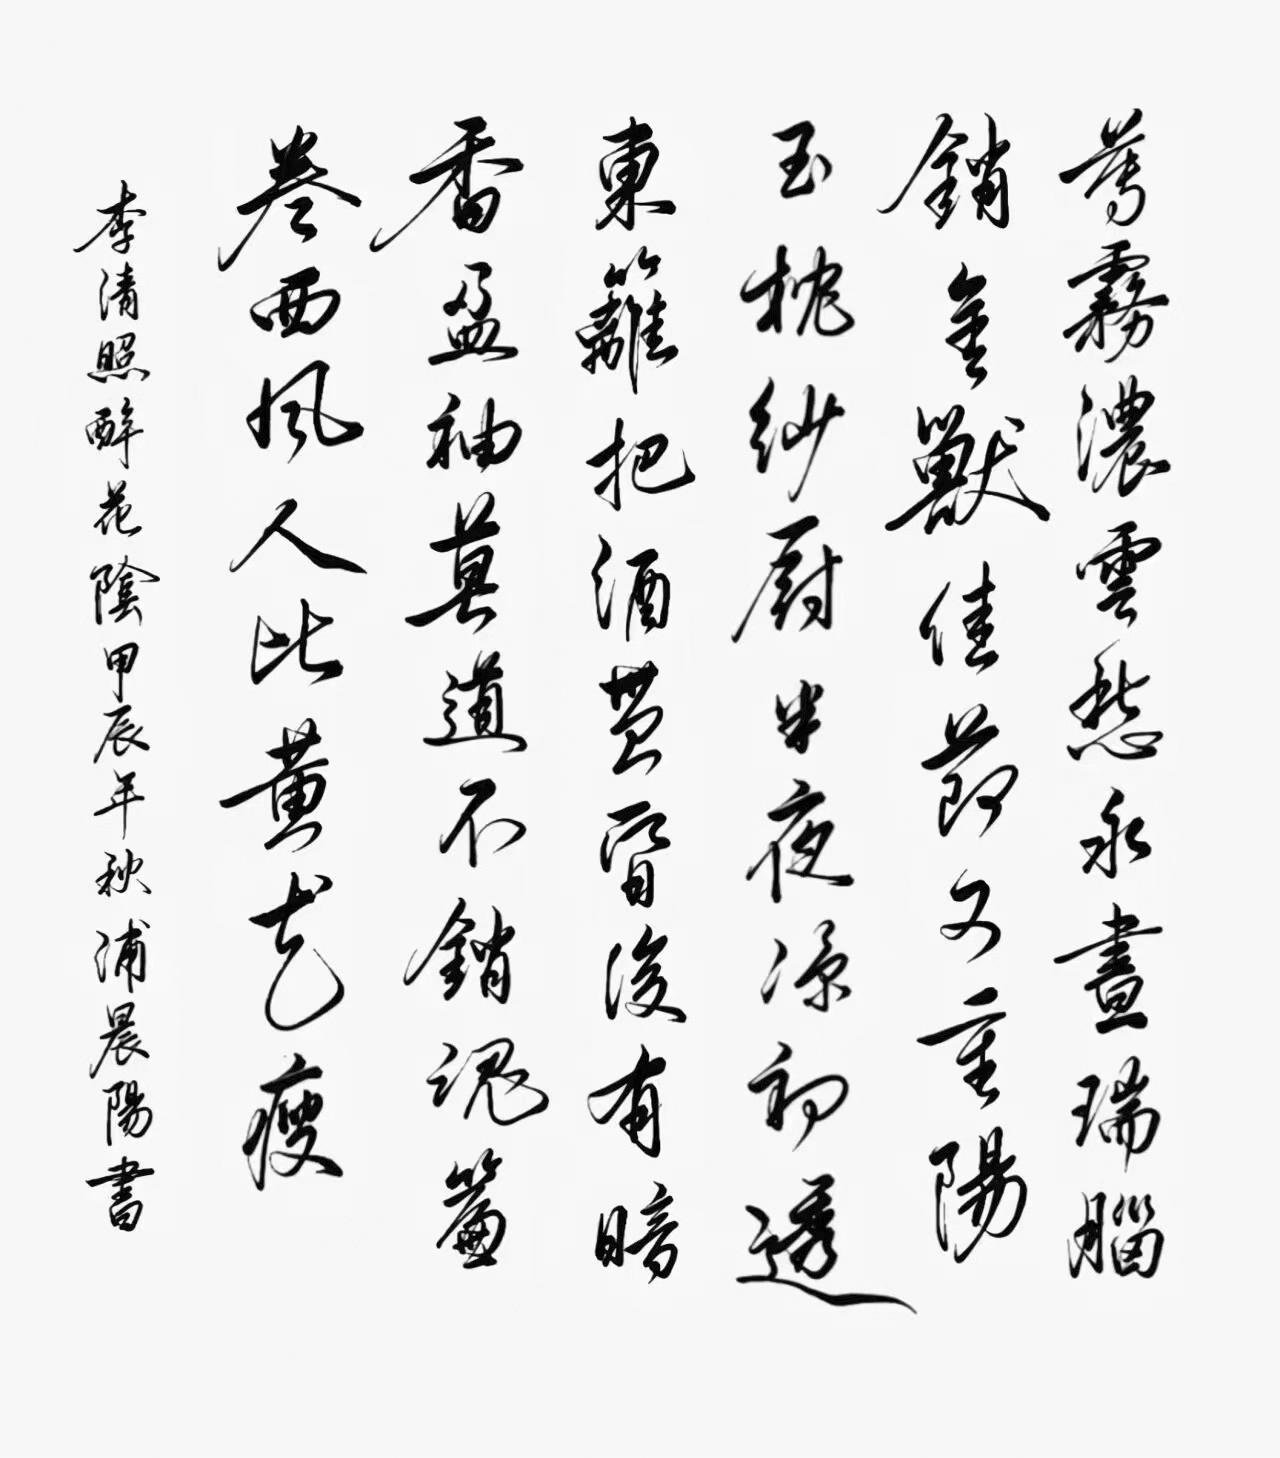 薄霧濃雲愁永晝瑞腦
銷金獸佳節又重陽
玉枕紗厨半夜涼初透
東籬把酒黄昏後有暗
香盈袖莫道不銷魂簾
卷西風人比黄花瘦
李清照醉花陰甲辰年秋浦晨陽書